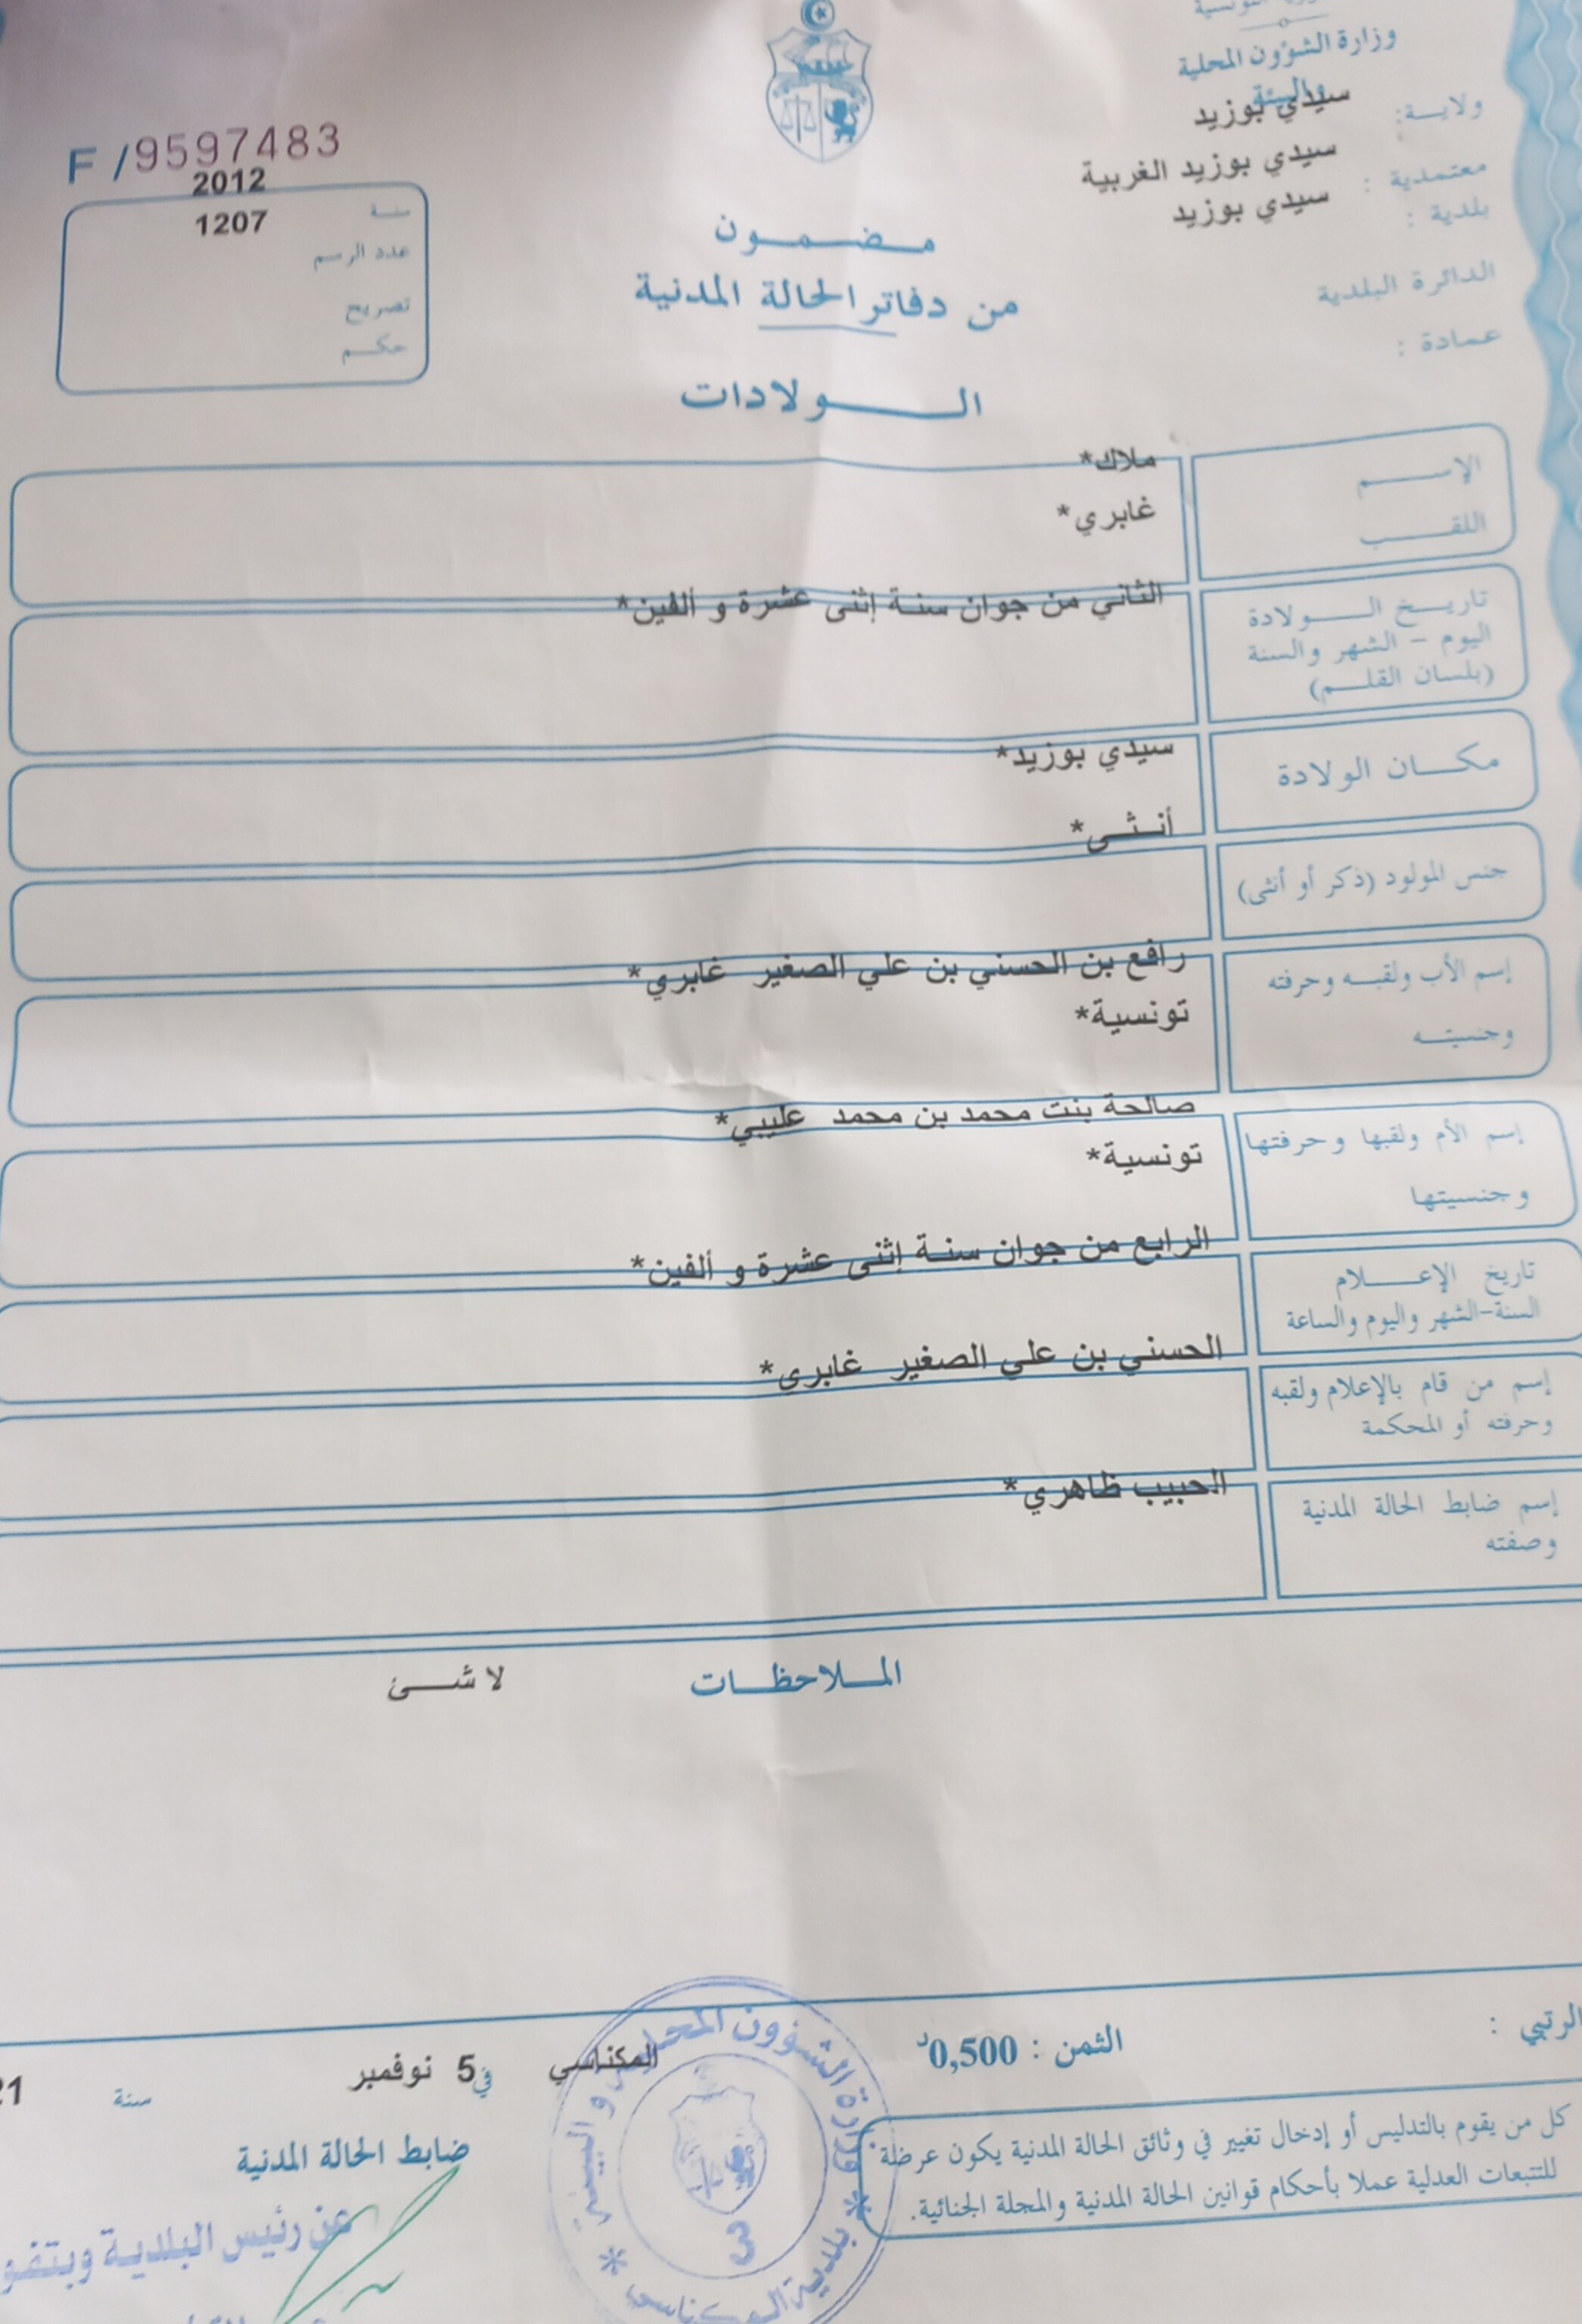 وزارة الشؤون المحلية
والبيئة
ولايـــة: سيدي بوزيد
معتمدية : سيدي بوزيد الغربية
بلدية : سيدي بوزيد
الدائرة البلدية
عمادة :
F /9597483
سنة 2012
عدد الرسم 1207
تصريح
حكـــم
مـــضـــمـــون
من دفاتر الحالة المدنية
الـــــولادات
الإســــــم ملاك*
اللقــــــب غابري*
تاريـــخ الـــــولادة الثاني من جوان سنـة إثنى عشرة و ألفين*
اليوم – الشهر والسنة
(بلسان القلـــم)
مكـــان الولادة سيدي بوزيد*
جنس المولود (ذكر أو أنثى) أنــثــى*
إسم الأب ولقبـــه وحرفته رافع بن الحسني بن علي الصغير غابري*
وجنسيتـــه تونسية*
إسم الأم ولقبها وحرفتها صالحة بنت محمد بن محمد عليبي*
وجنسيتها تونسية*
تاريخ الإعـــــلام الرابع من جوان سنـة إثنى عشرة و ألفين*
السنة-الشهر واليوم والساعة
إسم من قام بالإعلام ولقبه الحسني بن علي الصغير غابري*
وحرفته أو المحكمة
إسم ضابط الحالة المدنية الحبيب ظاهري*
وصفته
المـــلاحظـــات لا شـــئ
الرتبي :
الثمن : 0,500د
المكناسي في 5 نوفمبر سنة 21
ضابط الحالة المدنية
عن رئيس البلدية وبتفو
كل من يقوم بالتدليس أو إدخال تغيير في وثائق الحالة المدنية يكون عرضة
للتتبعات العدلية عملا بأحكام قوانين الحالة المدنية والمجلة الجنائية.
وزارة الشؤون المحلية و البيئة
* بلدية المكناسي *